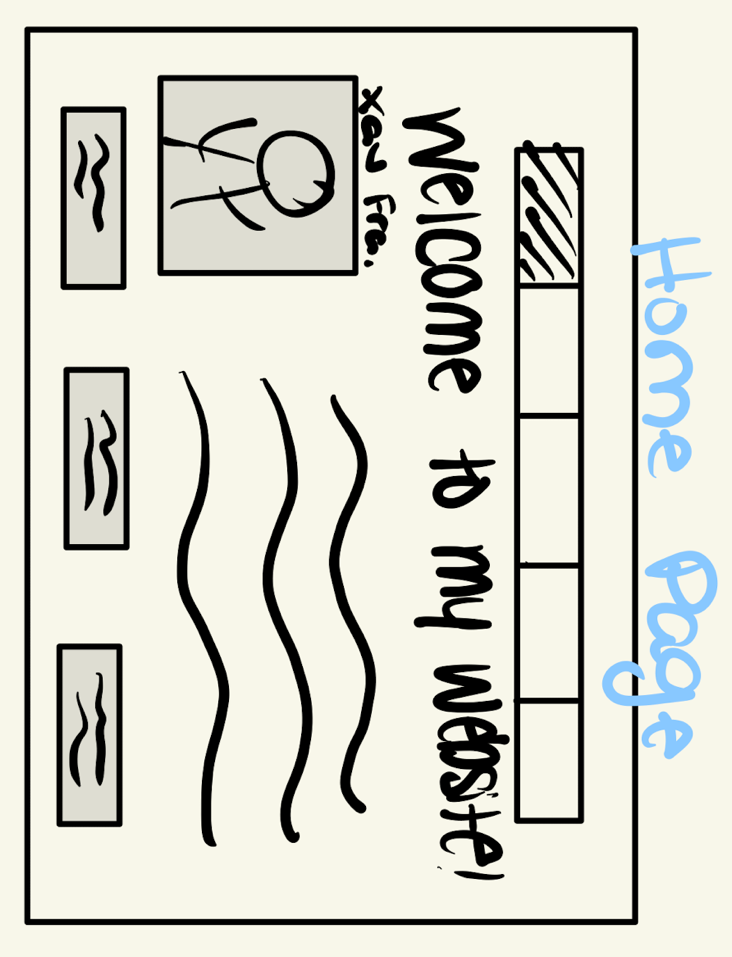 Home Page
Welcome to my website!